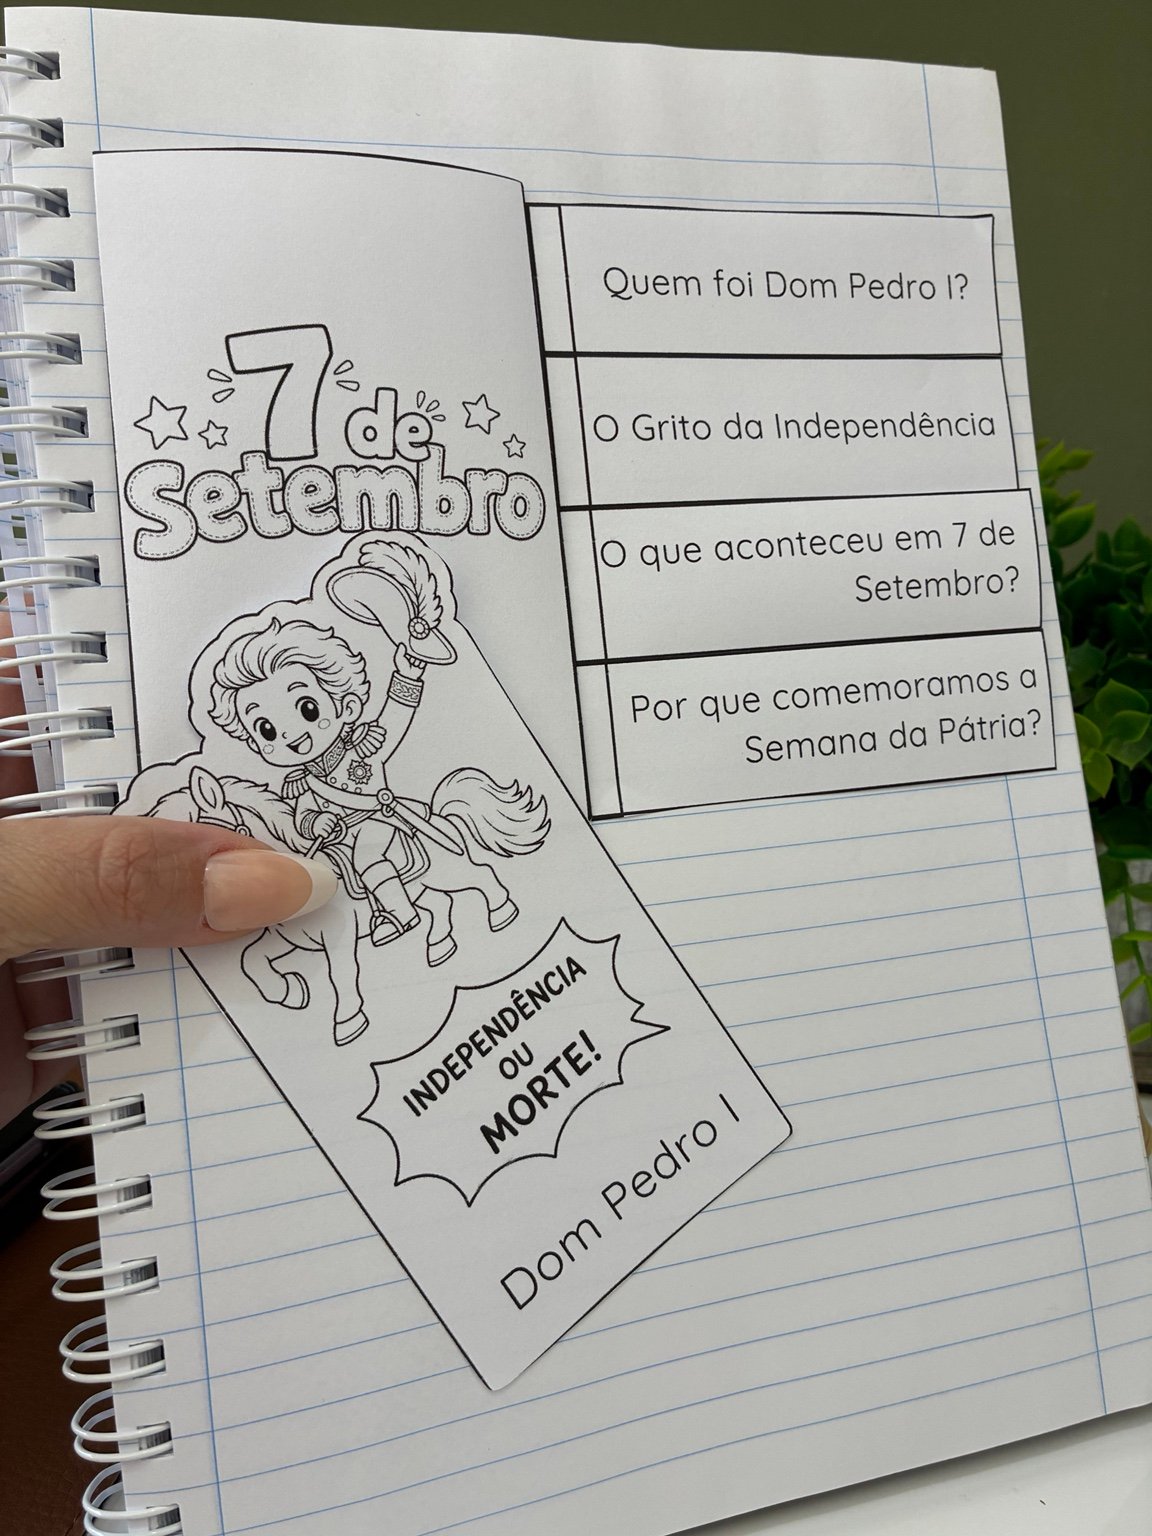 7 de
Setembro
INDEPENDÊNCIA
OU
MORTE!
Dom Pedro I
Quem foi Dom Pedro I?
O Grito da Independência
O que aconteceu em 7 de
Setembro?
Por que comemoramos a
Semana da Pátria?